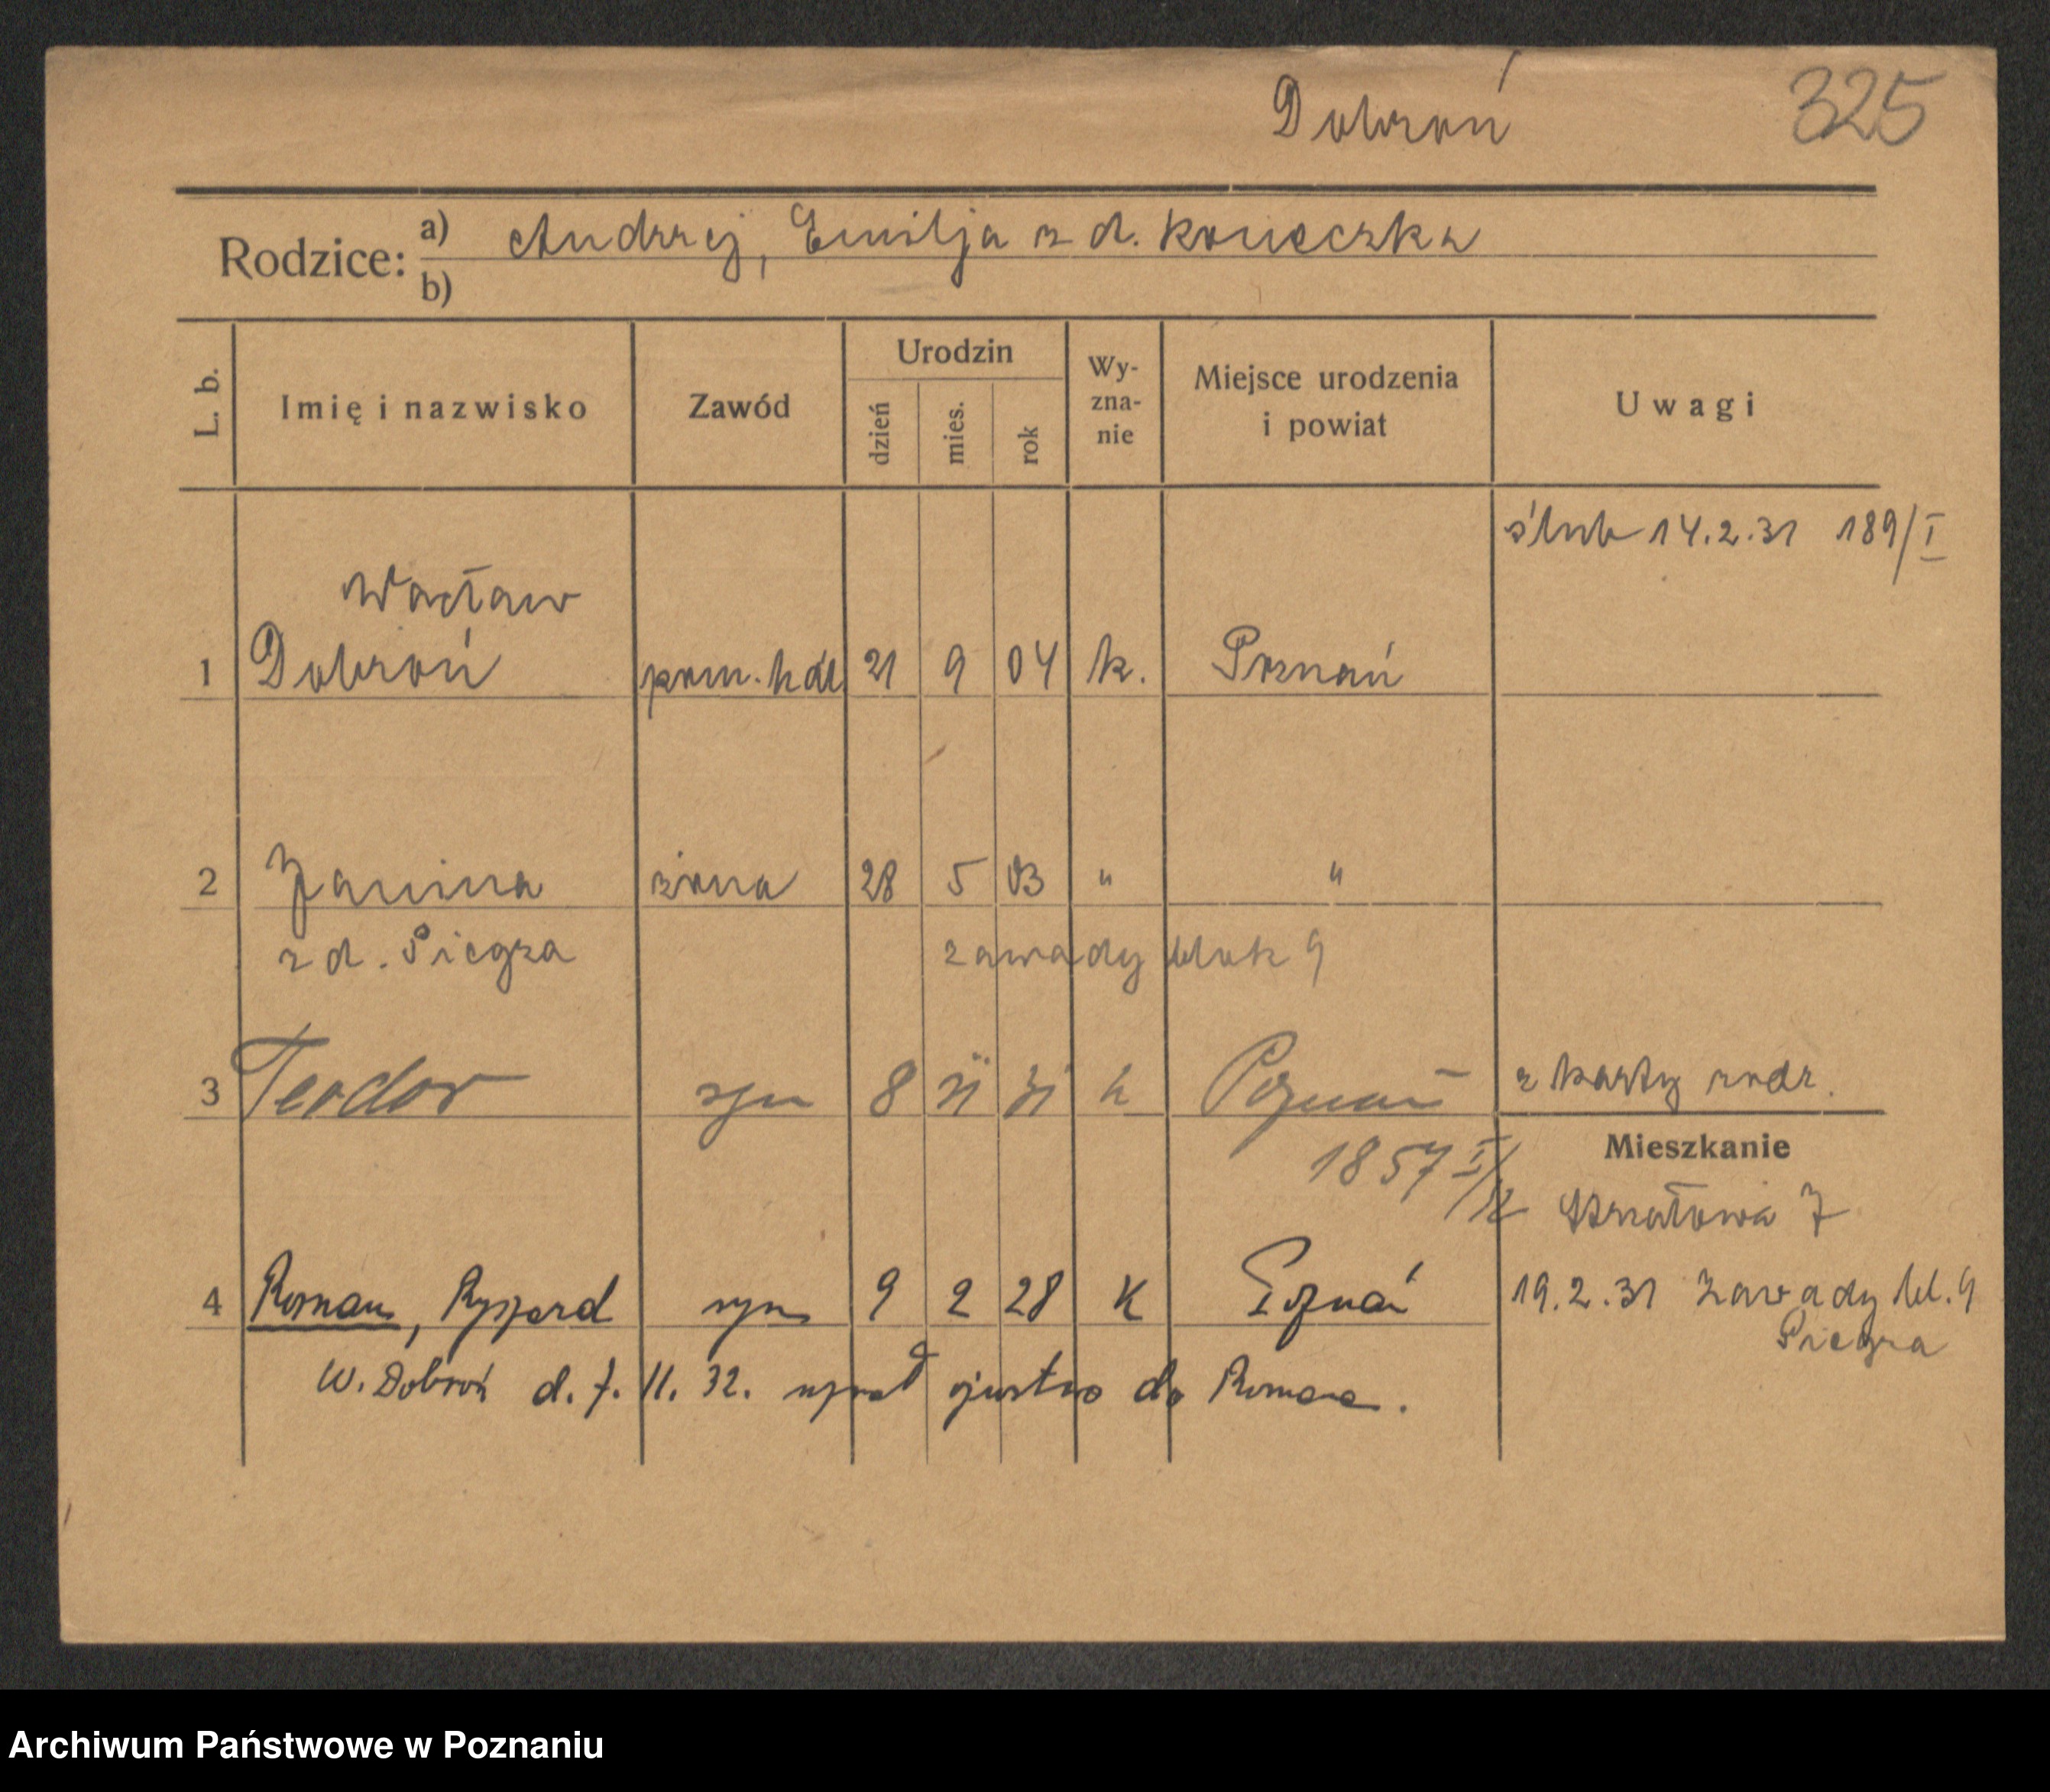 Dobroń 325
Rodzice: a) Andrzej, Emilja z d. Konieczka
b)
L. b. Imię i nazwisko Zawód Urodzin dzień mies. rok Wy-zna-nie Miejsce urodzenia i powiat Uwagi
ślub 14.2.31 189/I
Wacław
1 Dobroń pom. hdl 21 9 04 k. Poznań
2 Janina żona 28 5 03 " "
z d. Piegza zawady blok 9
3 Teodor syn 8 XI 31 k Poznań z karty rodz.
1857 I/12
Mieszkanie
7
4 Roman, Ryszard syn 9 2 28 K Poznań 19.2.31 Zawady bl. 9
Piegza
W. Dobroń d. 7. 11. 32. uznał ojcostwo do Romana.
Archiwum Państwowe w Poznaniu